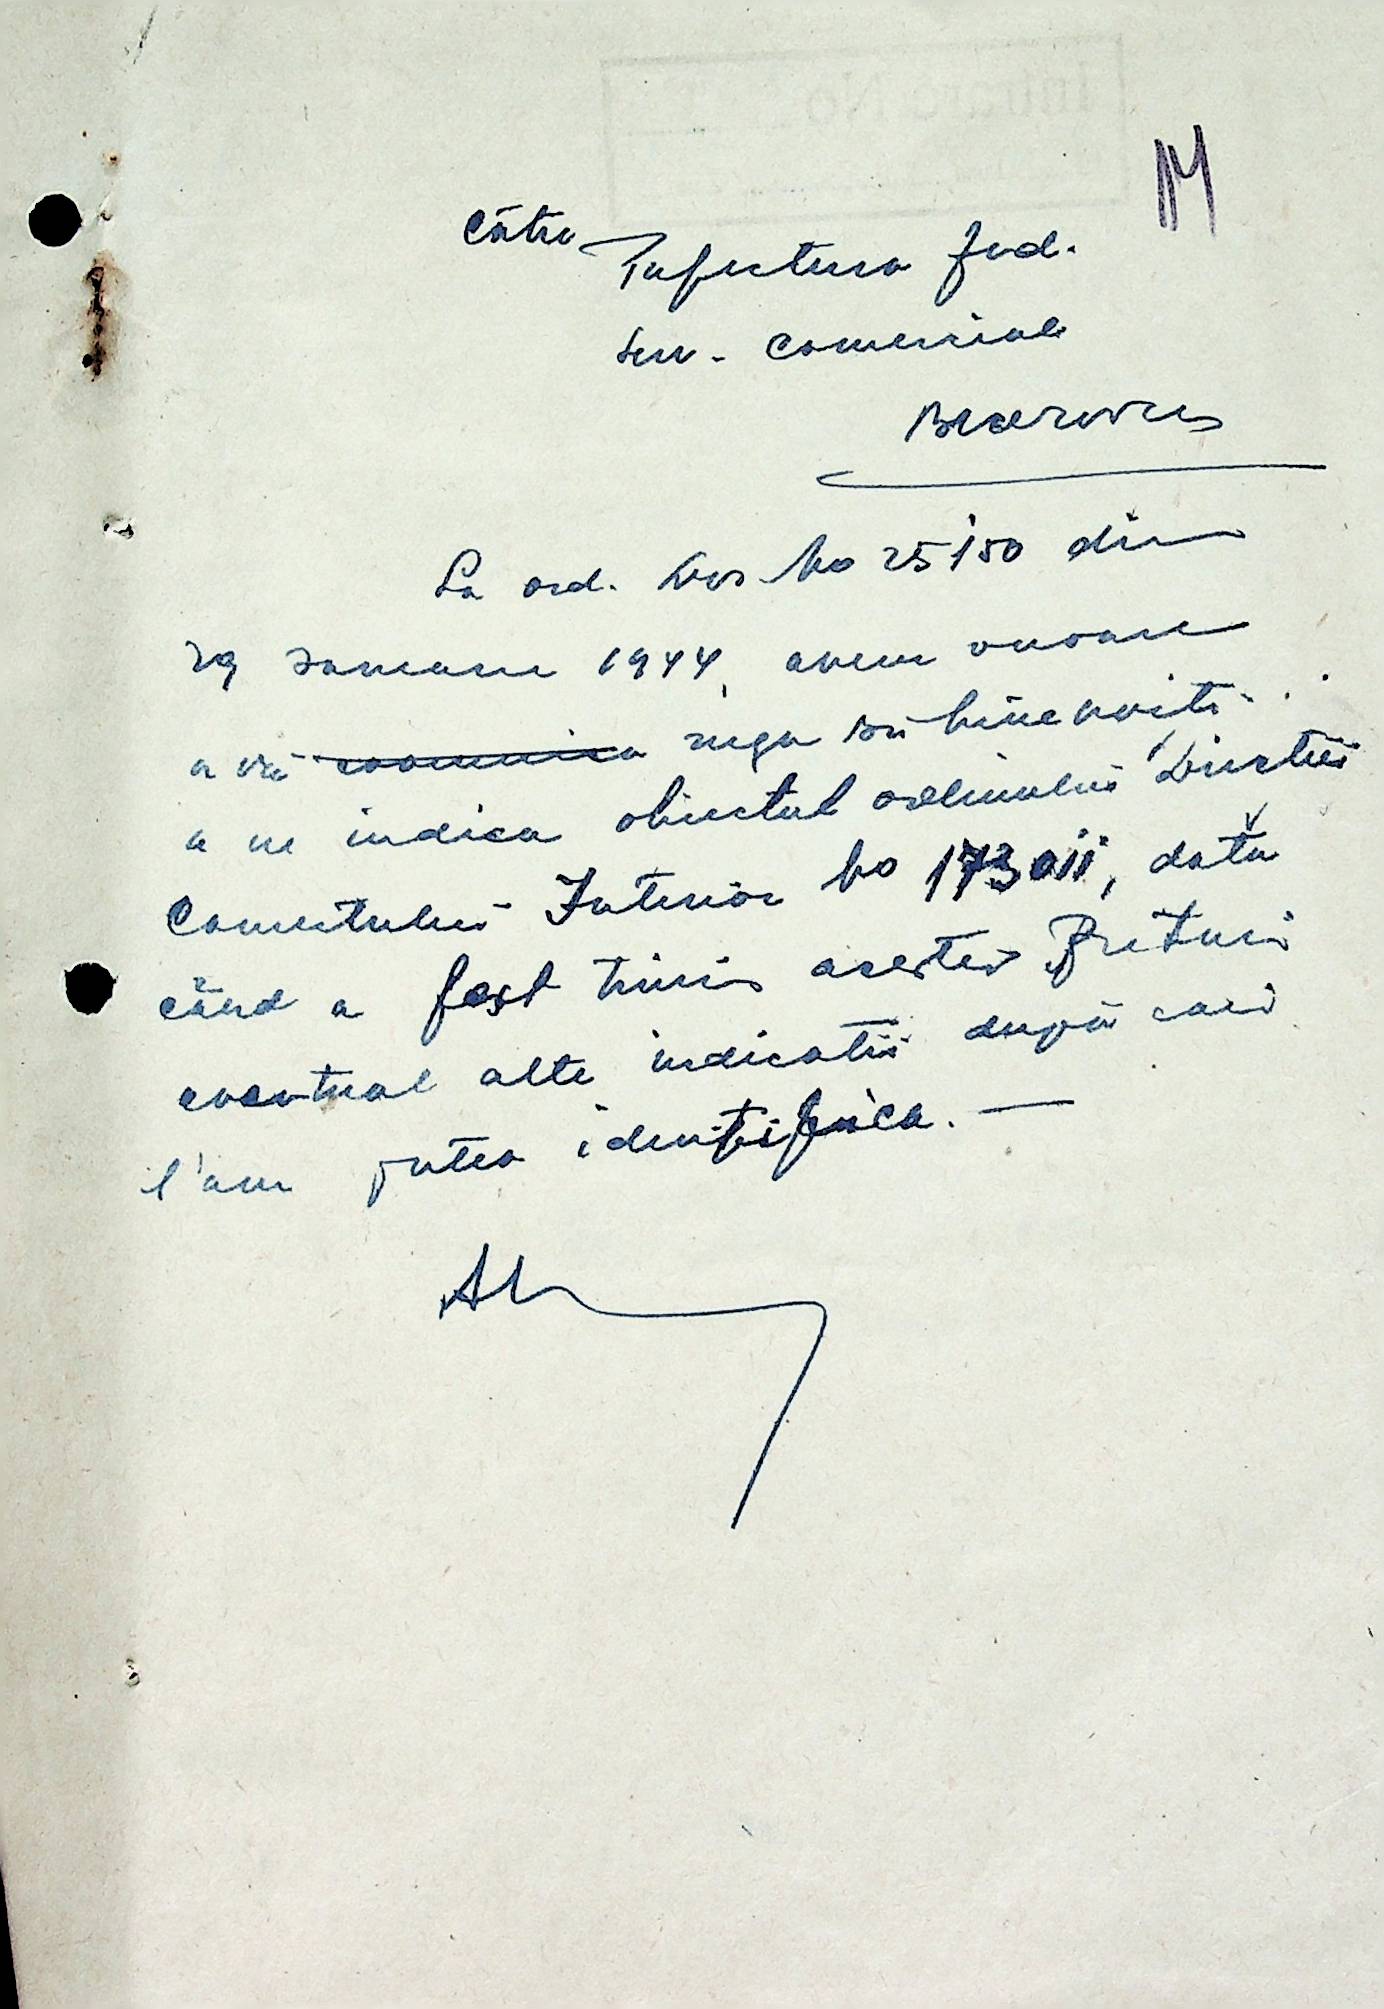 Către Prefectura Jud.
Serv. Comercial
La ord. Dvs No 25150 din
29 Ianuarie 1944, avem onoare
a vă comunica ruga să binevoiți
a ne indica obiectul ordinului Direcției
Comertului Interior No 173011, data
când a fost trimis acestei Preturi
eventual alte indicații după cari
l'am putea identifica. —